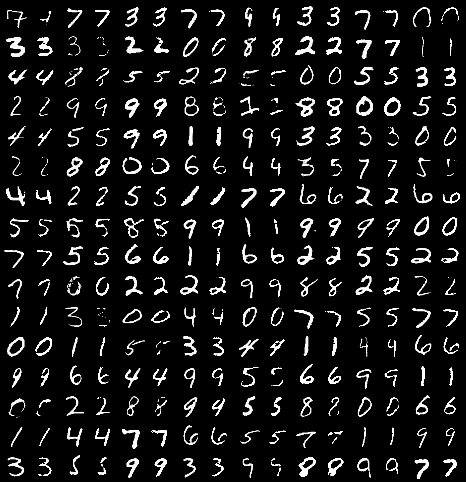 7 7 7 7 3 3 7 7 9 9 3 3 7 7 0 0
3 3 3 3 2 2 0 0 8 8 2 2 7 7 1 1
4 4 8 8 5 5 2 2 5 5 0 0 5 5 3 3
2 2 9 9 9 9 8 8 1 1 8 8 0 0 5 5
4 4 5 5 9 9 1 1 9 9 3 3 3 3 0 0
2 2 8 8 0 0 6 6 4 4 5 5 7 7 5 5
4 4 2 2 5 5 1 1 7 7 6 6 2 2 6 6
5 5 5 5 8 8 9 9 1 1 9 9 9 9 0 0
7 7 5 5 6 6 1 1 6 6 2 2 5 5 2 2
7 7 0 0 2 2 2 2 9 9 8 8 2 2 2 2
1 1 3 3 0 0 4 4 0 0 7 7 5 5 7 7
0 0 1 1 5 5 3 3 4 4 1 1 9 9 6 6
9 9 6 6 4 4 9 9 5 5 6 6 9 9 1 1
0 0 2 2 8 8 9 9 5 5 8 8 0 0 6 6
1 1 4 4 7 7 6 6 5 5 7 7 1 1 9 9
3 3 5 5 9 9 3 3 9 9 8 8 9 9 7 7